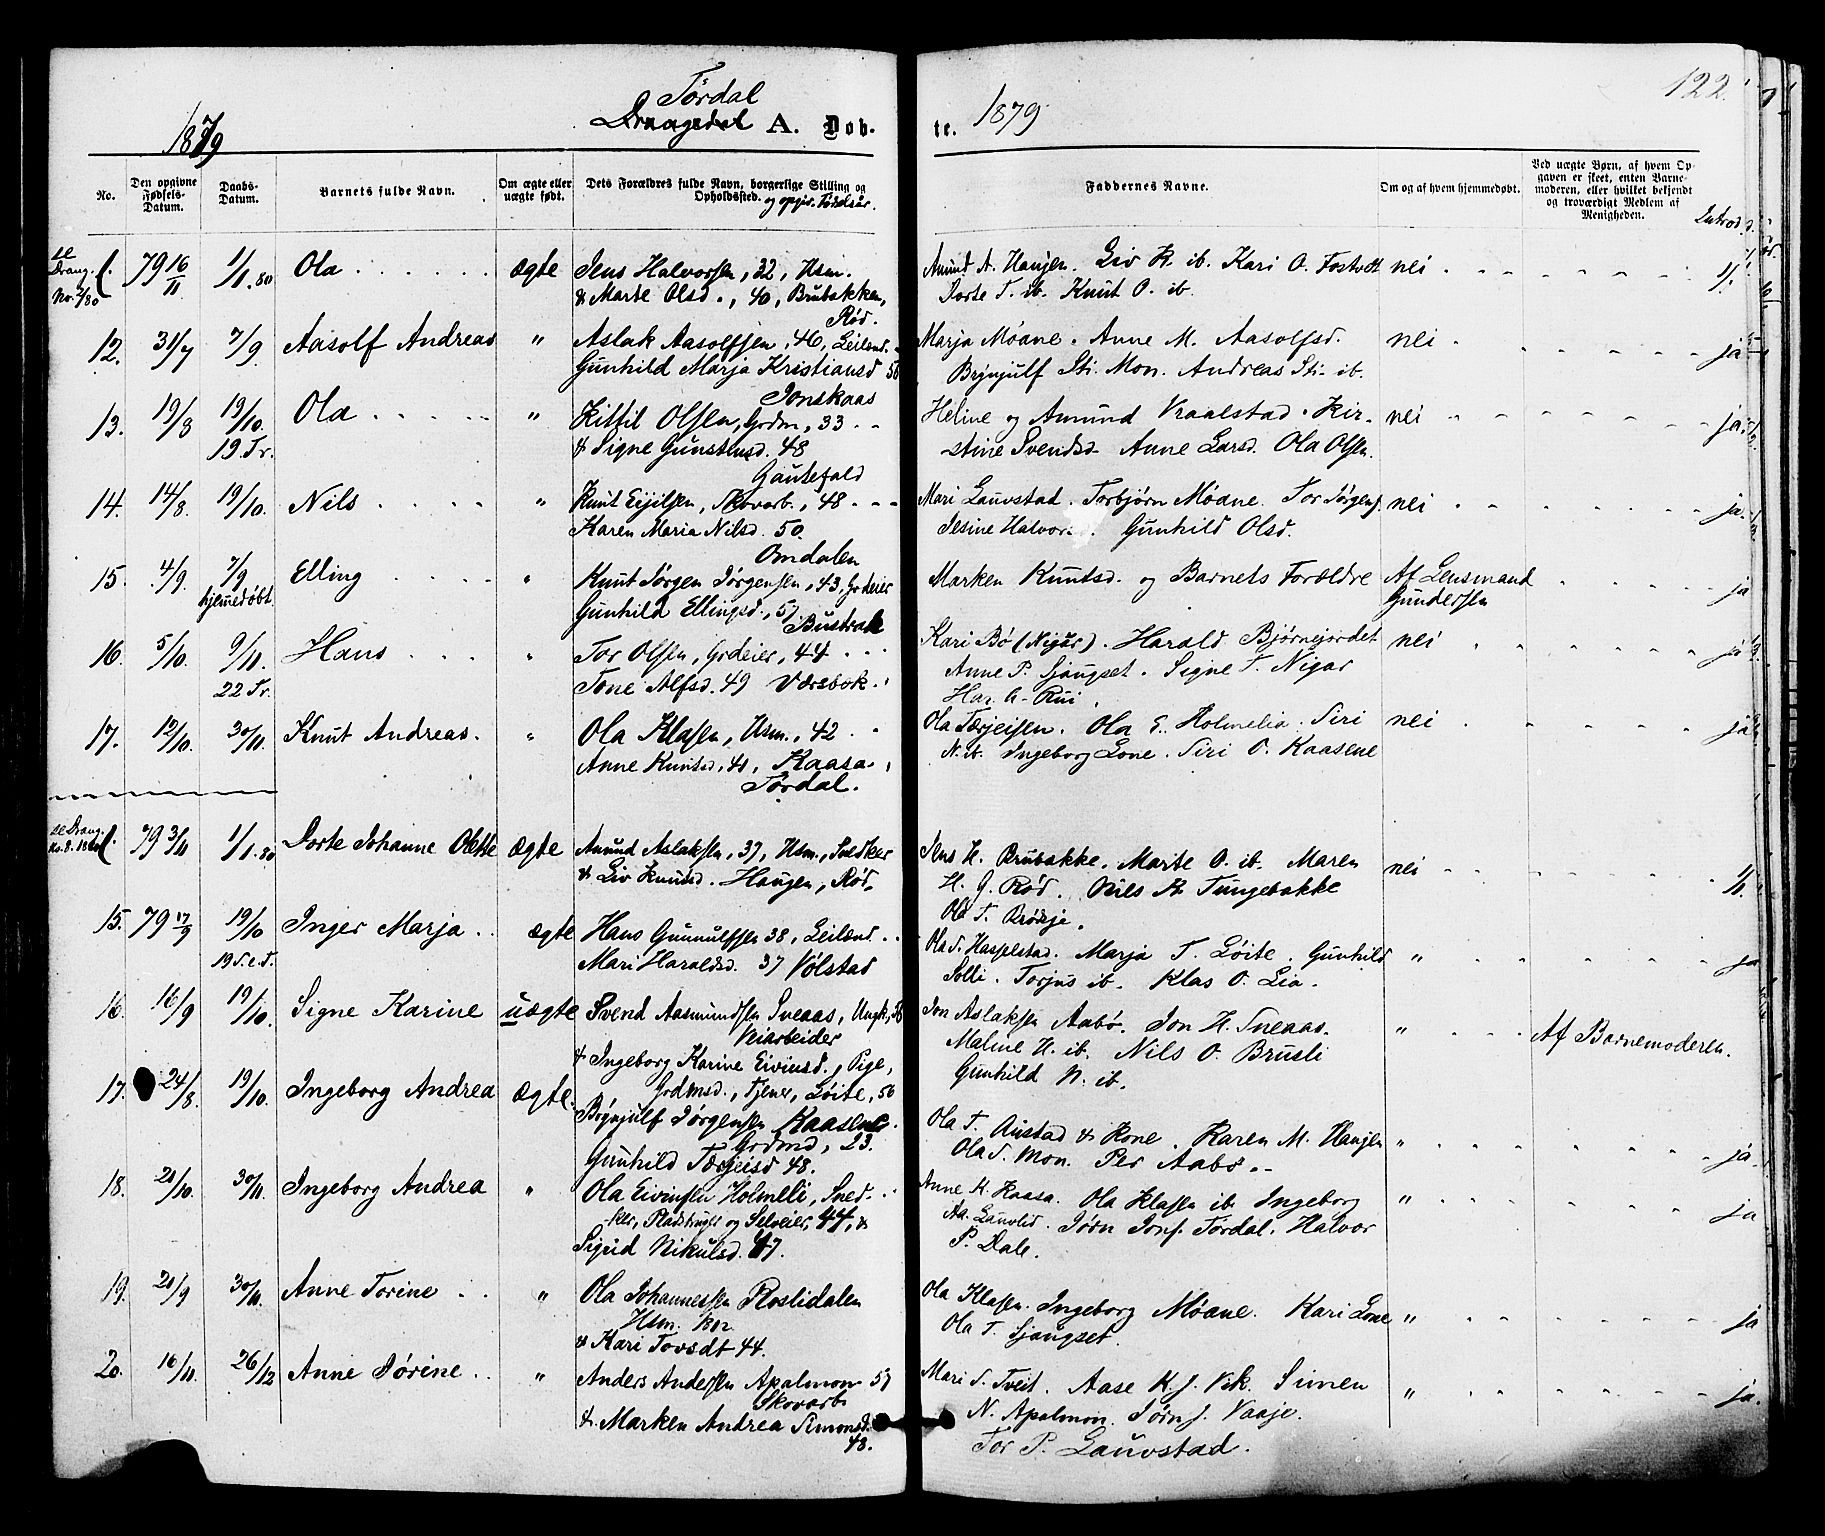 Tørdal
1879 Drangedal A. Døb-
te. 1879
122.
No.
Den opgivne Fødsels-Datum.
Daabs-Datum.
Barnets fulde Navn.
Om ægte eller uægte født.
Dets Forældres fulde Navn, borgerlige Stilling og Opholdssted.
og opgiv. Fødselsår.
Faddernes Navne.
Om og af hvem hjemmedøbt.
Ved uægte Børn, af hvem Opgaven er skeet, enten Barnemoderen, eller hvilket bekjendt og troværdigt Medlem af Menigheden.
Introd.
se Drang. No. 2/80 79 16/11 1/1.80 Ola ægte Jens Halvorsen, 32, Hsm.
& Marte Olsd., 40, Brubakken,
Rød.
Amund A. Haugen. Liv K. ib. Kari O. Fostvedt nei 1/1.
Dorte T. ib. Knut O. ib.
12. 31/7 7/9 Aasolf Andreas " Aslak Aasolfsen, 46, Leilænd.
Gunhild Marja Kristiansd 50
Jonskaas
Marja Moane. Anne M. Aasolfsd. nei ja
Brynjulf Sti. Mon. Andreas Sti. ib.
13. 19/8 19/10. Ola " Kittil Olsen, Grdm, 33
19. Tr. & Signe Gunstensd. 48
Gautefald
Heline og Amund Vraalstad. Kir- nei ja
stine Svendsd. Anne Larsd. Ola Olsen.
14. 14/8. 19/10. Nils " Knut Eijilsen, Skovarb., 48
Karen Maria Nilsd. 50.
Omdalen
Mari Lauvstad. Torbjørn Moane. Tor Jørgens. nei ja
Jesine Halvor Gunhild Olsd.
15. 4/9. 7/9 Elling " Knut Jørgen Jørgensen, 43, Grdeier
hjemedøbt Gunhild Ellingsd., 57
Bustrak
Marken Knutsd. og Barnets Forældre Af Lensmand ja
Gundersen
16. 5/10. 9/11. Hans " Tor Olsen, Grdeier, 44
22 Tr. Tone Alfsd. 49 Værsbok.
Kari Bø (Nigar). Harald Bjørnejordet nei ja
Anne P. Sjaugset. Signe T. Nigar
Har. A. Rui.
17. 12/10. 30/11. Knut Andreas. " Ola Klasen, Hsm., 42
Anne Knutsd., 41, Kaasa.
Tørdal.
Ola Tærjeisen. Ola E. Holmelia. Siri nei ja
N. ib. Ingeborg Lone. Siri O. Kaasene
se Drang. No. 8. 1880 79 3/11 1/1.80 Dorte Johanne Olette ægte Amund Aslaksen, 37, Hsm., Snedker
& Liv Knutsd. Haugen, Rød.
Jens H. Brubakke. Marite O. ib. Maren nei 1/1.
H. G. Rød. Nils A. Tungebakke
Ola T. Brødsje.
15. 79 17/9 19/10 Inger Marja ægte Hans Gunnulfsen 38, Leilænd.
19 S. e. T. Mari Haraldsd. 37 Vølstad
Ola S. Haspelstad. Marja T. Løite. Gunhild " ja
Solli. Torjus ib. Klas O. Lia.
16. 16/9 19/10. Signe Karine uægte Svend Aasmundsen Sneaas, Ungk., 56
Veiarbeider
& Ingeborg Karine Eivinsd., Pige,
Grdmsd., Tjener, Løite, 56
Jon Aslaksen Aabø. Jon H. Sneaas. " Af Barnemoderen.
Maline H. ib. Nils O. Brusli
Gunhild N. ib.
17. 24/8. 19/10. Ingeborg Andrea ægte. Brynjulf Jørgensen Kaasene
Grdmd, 23.
Gunhild Tærjeisd 48.
Ola T. Austad & Kone. Karen M. Haugen " ja.
Ola S. Mon. Per Aabø.
18. 20/10. 30/11. Ingeborg Andrea " Ola Eivinsen Holmeli, Sned-
ker, Pladshuger og Selveier, 44, &
Sigrid Nikulsd. 47.
Anne K. Kaasa. Ola Klasen ib. Ingeborg " ja
Aa. Lauvlid. Jørn Jons. Tørdal. Halvor
P. Dale.
19. 20/9 30/11. Anne Torine " Ola Johannessen Roslidalen
Hsm.
& Kari Tovsdt 44.
Ola Klasen. Ingeborg Moane. Kari Lone " ja
Ola T. Sjaugset.
20. 16/11. 26/12 Anne Jørine " Anders Andersen Apalmon 57
Skovarb
& Marken Andrea Simonsd.
48.
Mari S. Tveit. Aase K. J. Vik. Simen " ja.
N. Apalmon. Jørn J. Vaaje.
Tor P. Lauvstad.